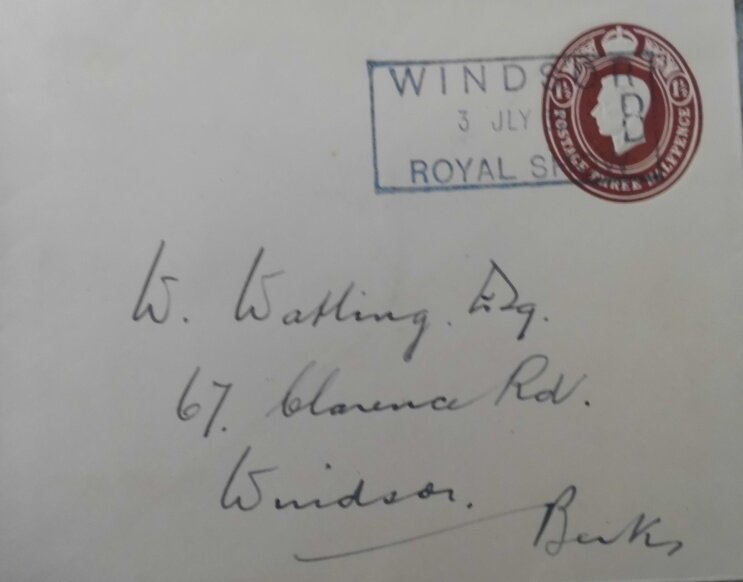 WINDSOR
3 JLY
ROYAL SH
1½ 1½
POSTAGE THREE HALFPENCE
W. Watling. Esq.
67. Clarence Rd.
Windsor.
Berks